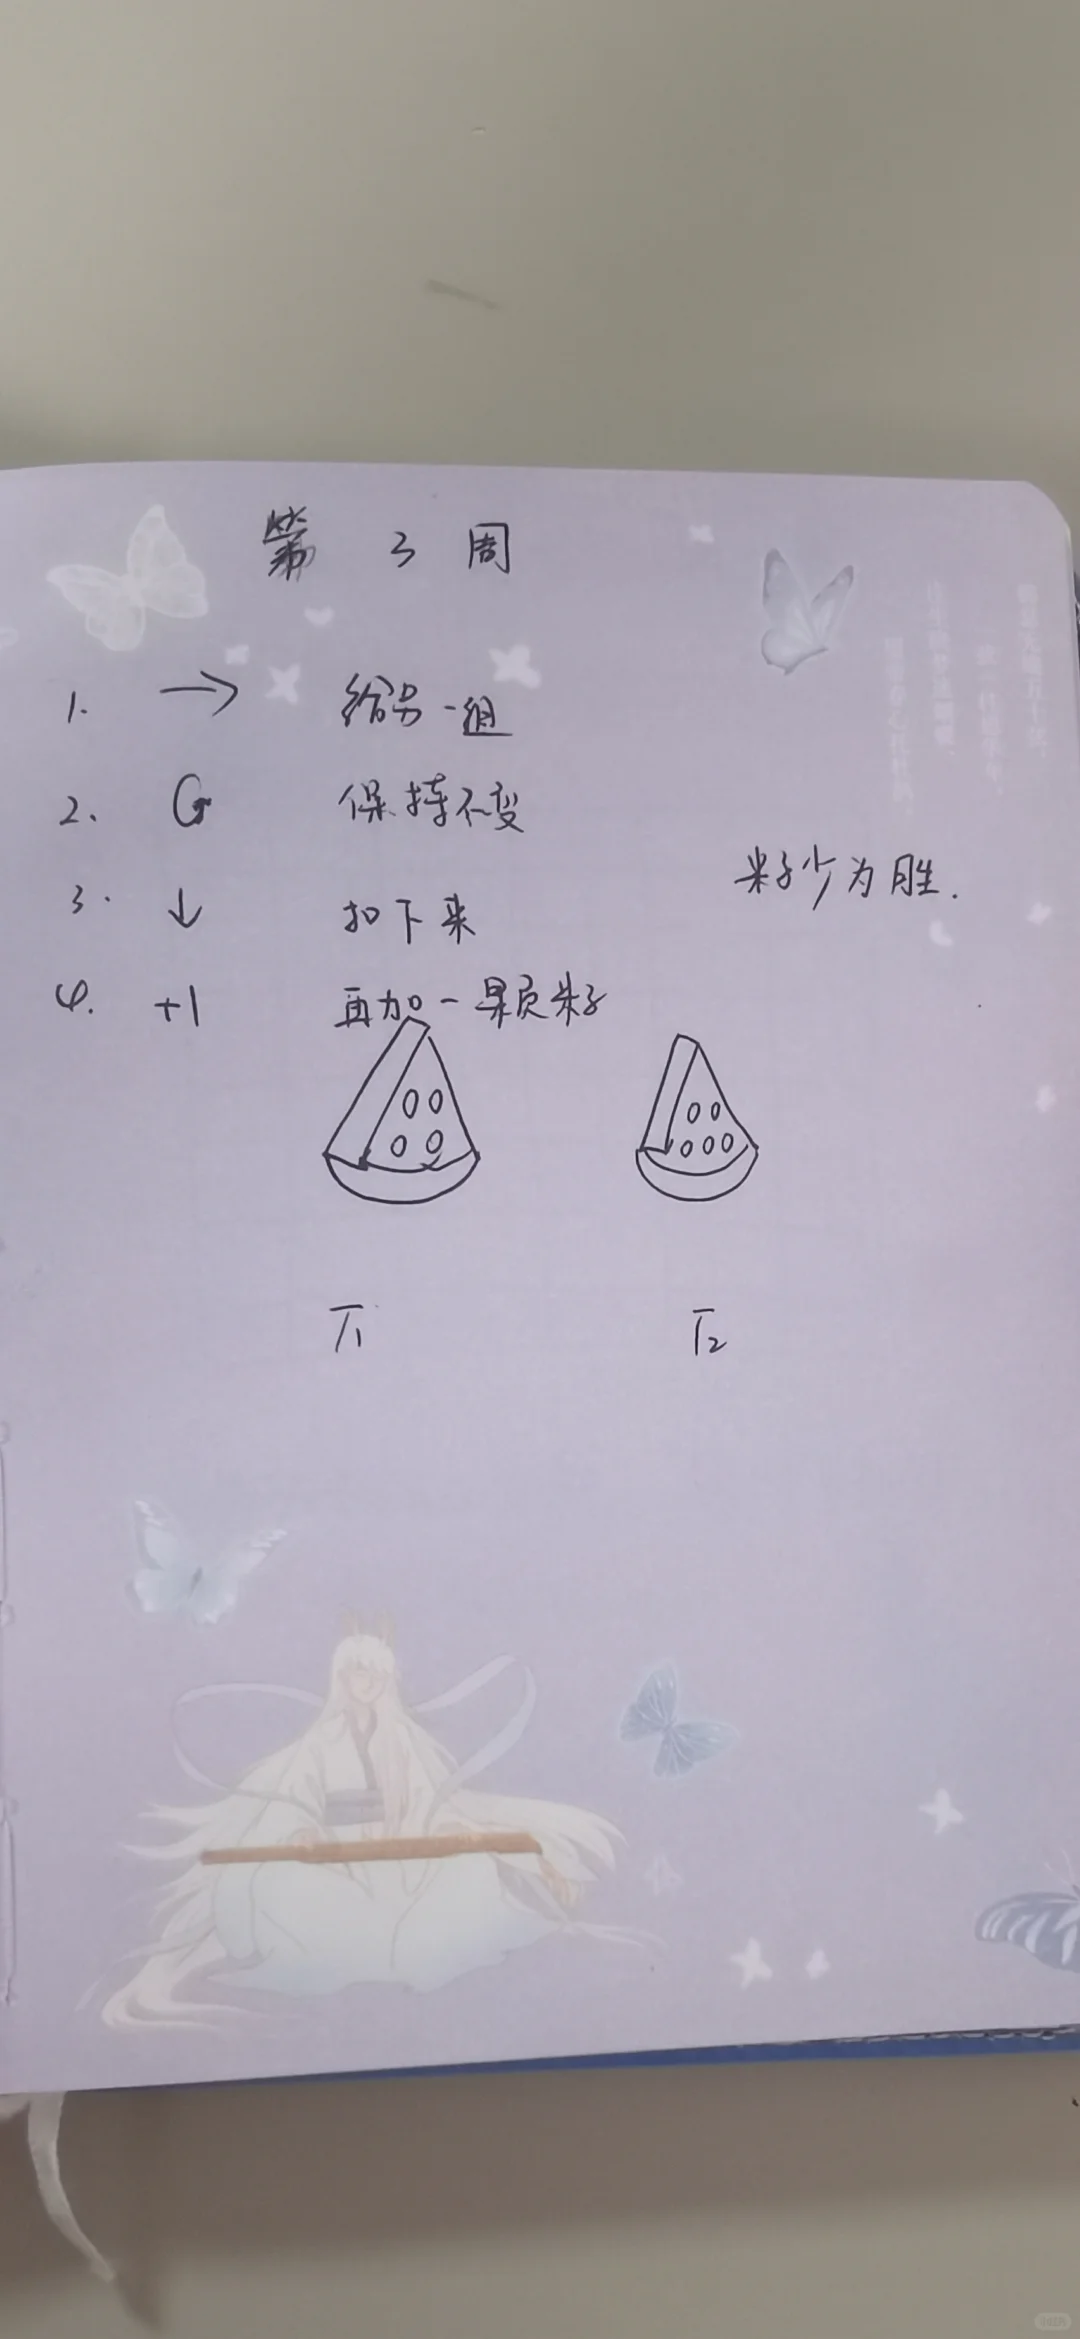 第 3 周
1. → 给另一组
2. G 保持不变
3. ↓ 扣下来
籽少为胜.
4. +1 再加一颗籽
T1
T2